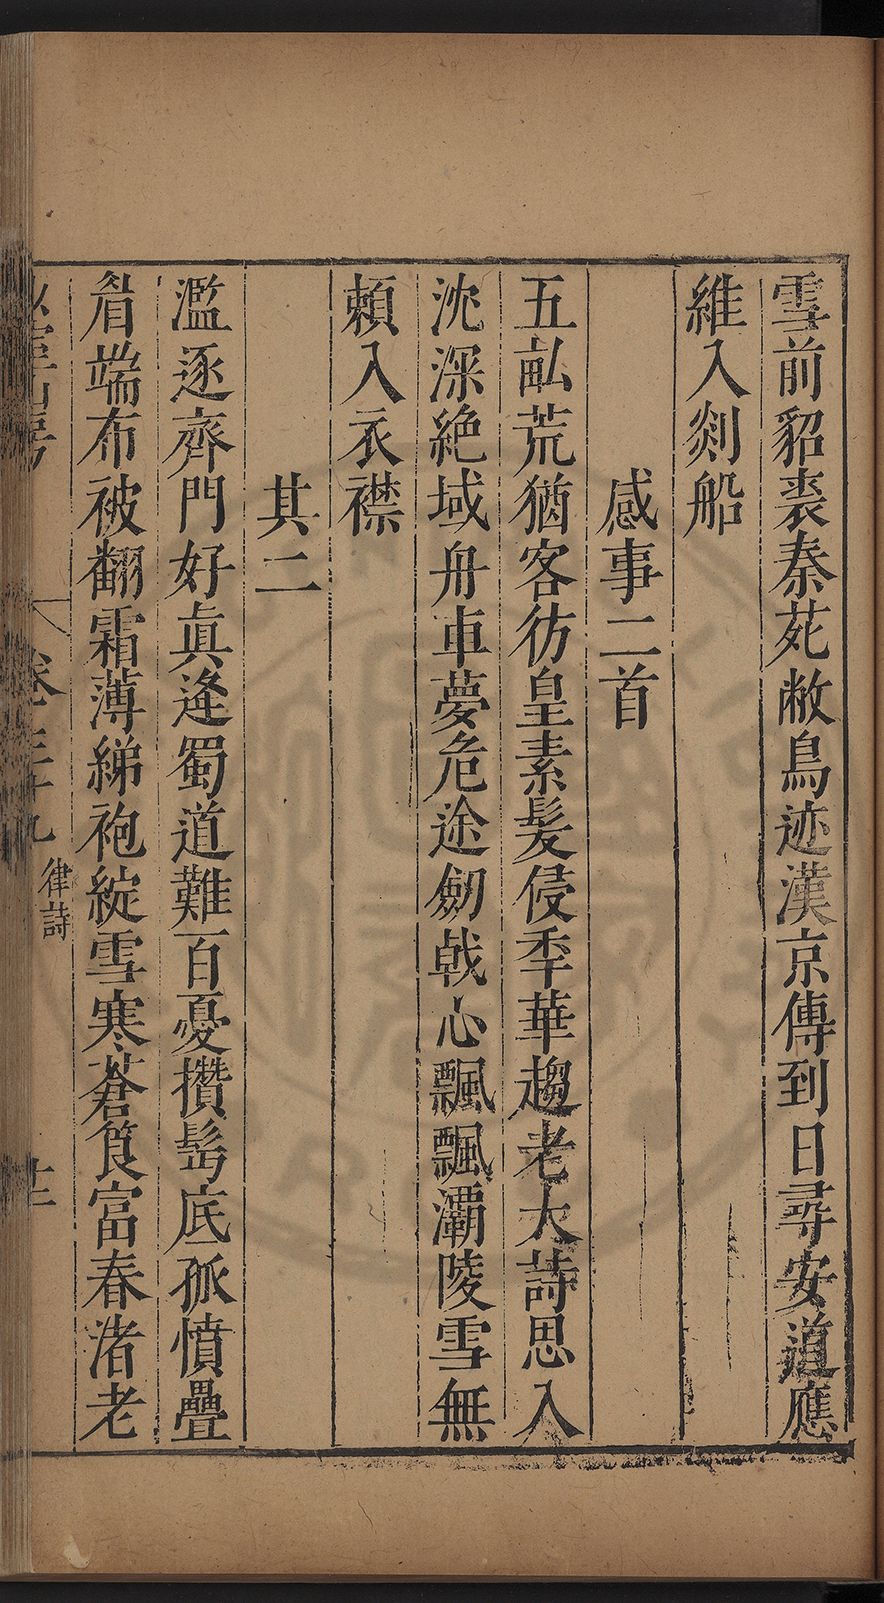 雪前貂裘秦苑敝鳥迹漢京傳到日尋安道應
維入剡船
感事二首
五畝荒猶客彷皇素髪侵季華趨老大詩思入
沈深絶域舟車夢危途劒戟心飄飄灞陵雪無
頼入衣襟
其二
濫逐齊門好眞逢蜀道難百憂攢髩底孤憤疊
眉端布被翻霜薄綈袍綻雪寒蒼筤富春渚老
卷三十九 律詩